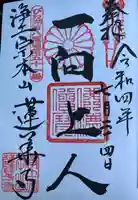 奉拝 令和四年
七月二十四日
一向上人
浄土宗本山 蓮華寺